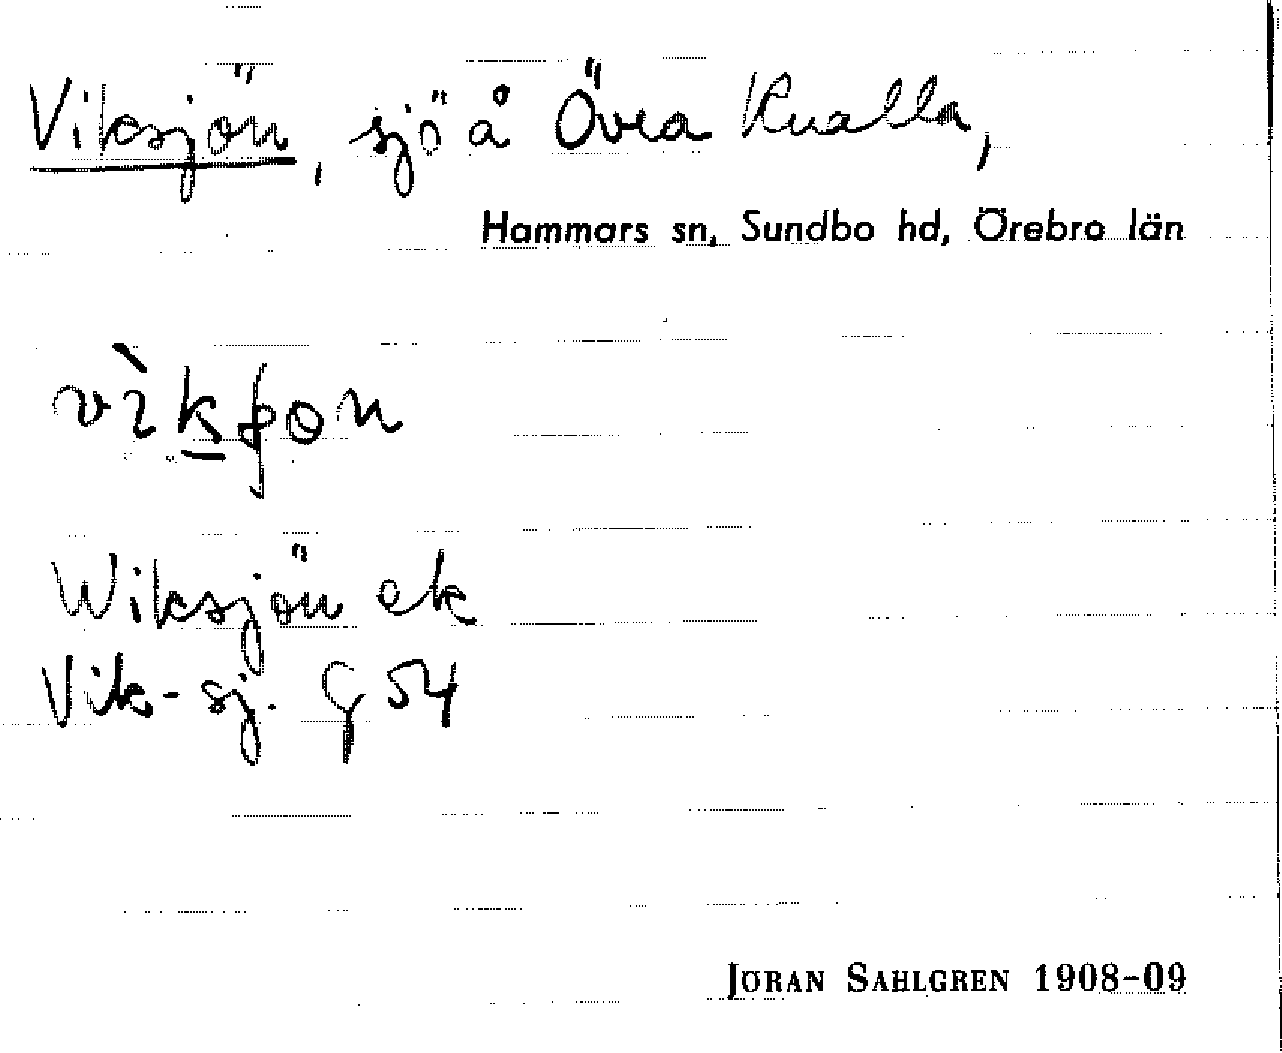 Viksjön, sjö å Övra Kualla,
Hammars sn, Sundbo hd, Örebro län
Wiksjön ek
Vik-sj. § 54
JÖRAN SAHLGREN 1908-09